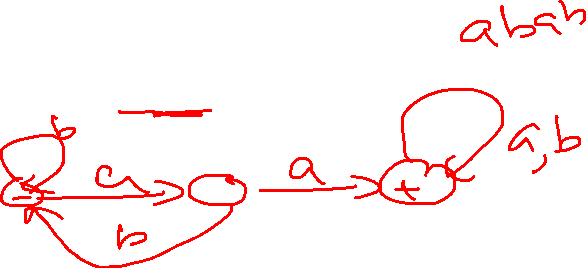 abab
b
a
a
a,b
b
-
+